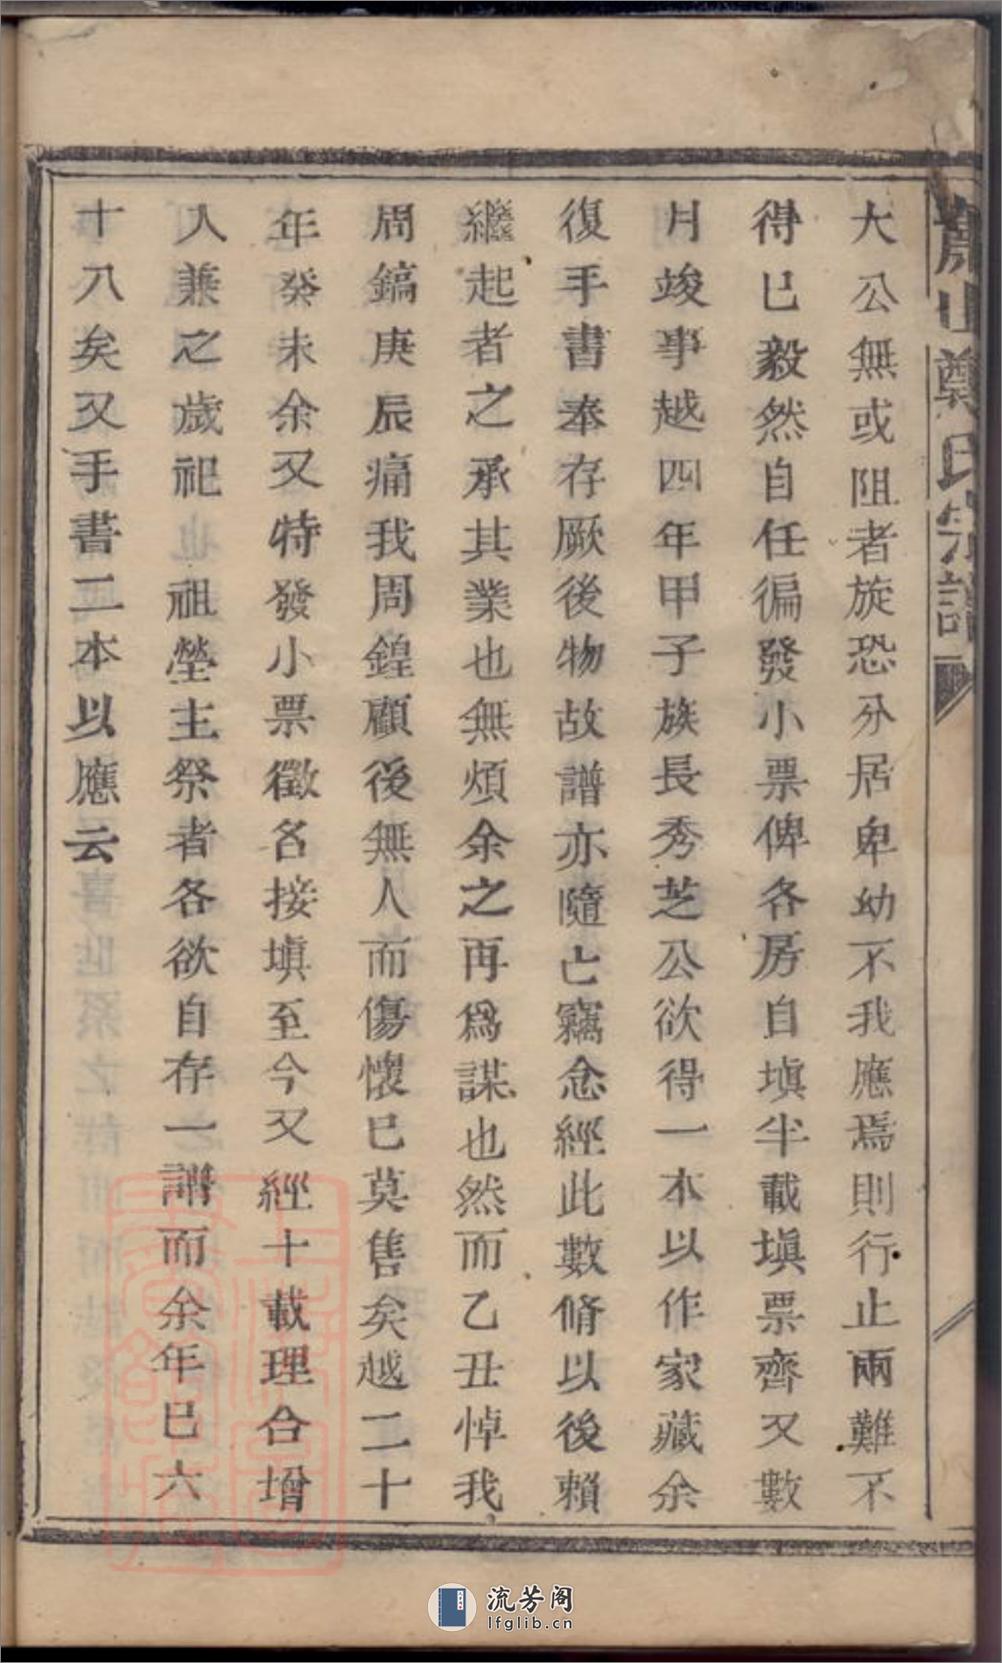 大公無或阻者旋恐分居卑幼不我應焉則行止兩難不
得已毅然自任徧發小票俾各房自塡半載塡票齊又數
月竣事越四年甲子族長秀芝公欲得一本以作家藏余
復手書奉存厥後物故譜亦隨亡竊念經此數脩以後賴
繼起者之承其業也無煩余之再爲謀也然而乙丑悼我
周鎬庚辰痛我周鍠顧後無人而傷懷已莫售矣越二十
年癸未余又特發小票徵名接塡至今又經十載理合增
入兼之歲祀祖塋主祭者各欲自存一譜而余年已六
十八矣又手書二本以應云
山鄭氏宗譜
流芳阁
lfglib.cn